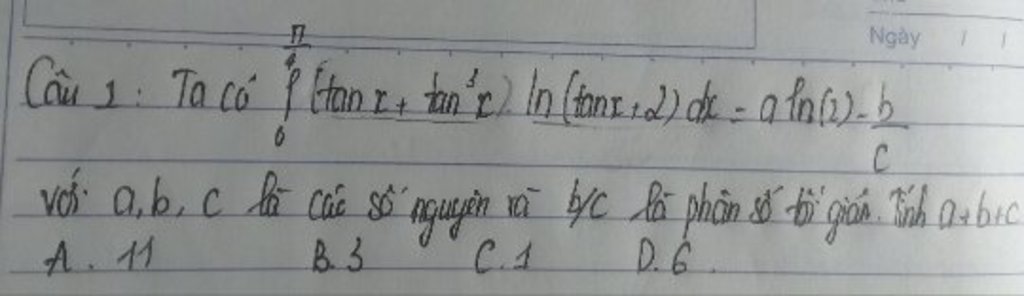 Ngày / /
Câu 1: Ta có ∫₀^(π/4) (tan x + tan³x) ln(tanx+2) dx = a ln(2) - b/c
với a, b, c là các số nguyên và b/c là phân số tối giản. Tính a+b+c
A. 11 B. 3 C. 1 D. 6.